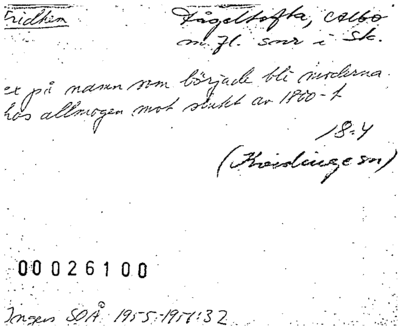 Fridhem
Fågeltofta, Albo
m.fl. snr i Sk.
et på namn som började bli moderna
hos allmogen mot slutet av 1800-t
18-4
(Kvidinge sn)
00026100
Ingers SOÅ 1955-1957:32